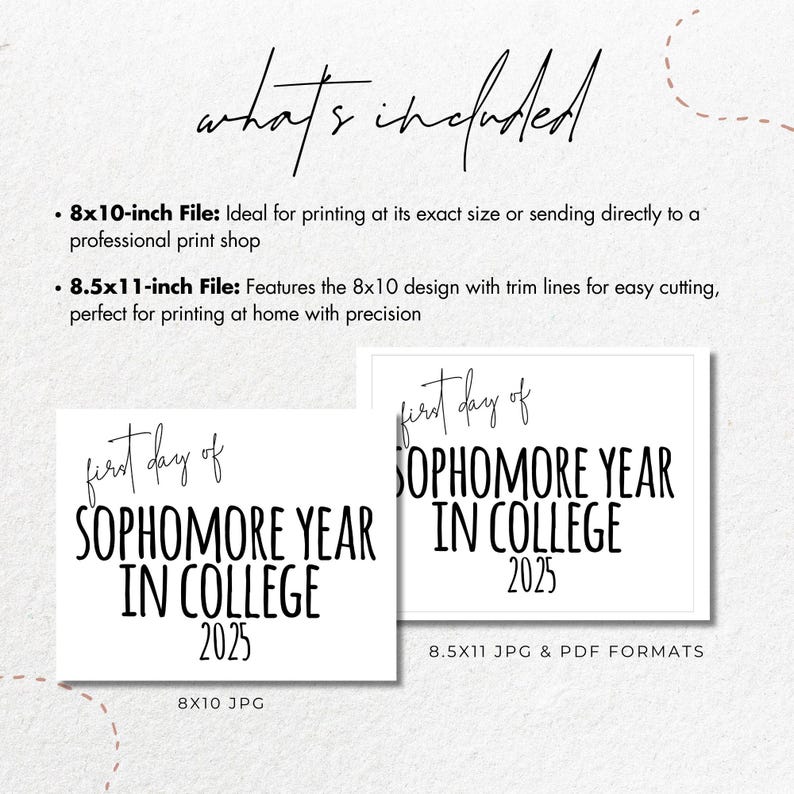 what's included
• 8x10-inch File: Ideal for printing at its exact size or sending directly to a
professional print shop
• 8.5x11-inch File: Features the 8x10 design with trim lines for easy cutting,
perfect for printing at home with precision
first day of
SOPHOMORE YEAR
IN COLLEGE
2025
8X10 JPG
first day of
SOPHOMORE YEAR
IN COLLEGE
2025
8.5X11 JPG & PDF FORMATS